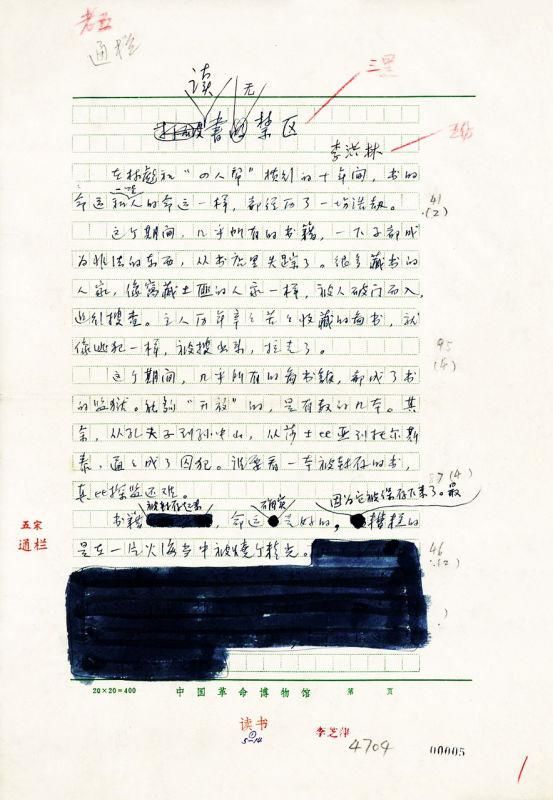 老五
通栏
三黑
读书无禁区
李洪林
在林彪和“四人帮”横行的十年间，书的
命运和人的命运一样，都经历了一场浩劫。
41
(2)
这个期间，几乎所有的书籍，一下子都成
为非法的东西，从书店里失踪了。很多藏书的
人家，像窝藏土匪的人家一样，被人破门而入，
进行搜查。主人历年辛々苦々收藏的图书，就
像逃犯一样，被搜出来，拉走了。
95
(4)
这个期间，几乎所有的图书馆，都成了书
的监狱。能够“开放”的，是有数的几本。其
余，从孔夫子到孙中山，从莎士比亚到托尔斯
泰，通々成了囚犯。谁要看一本被封存的书，
(4)
真比探监还难。
书籍被封存起来，命运确实是好的，因为它被保存下来了。最糟糕的
是在一片火海当中被烧个精光。
46
(2)
五宋
通栏
20×20=400 中国革命博物馆 第 页
读书
李芝萍
5-14
4704
00005